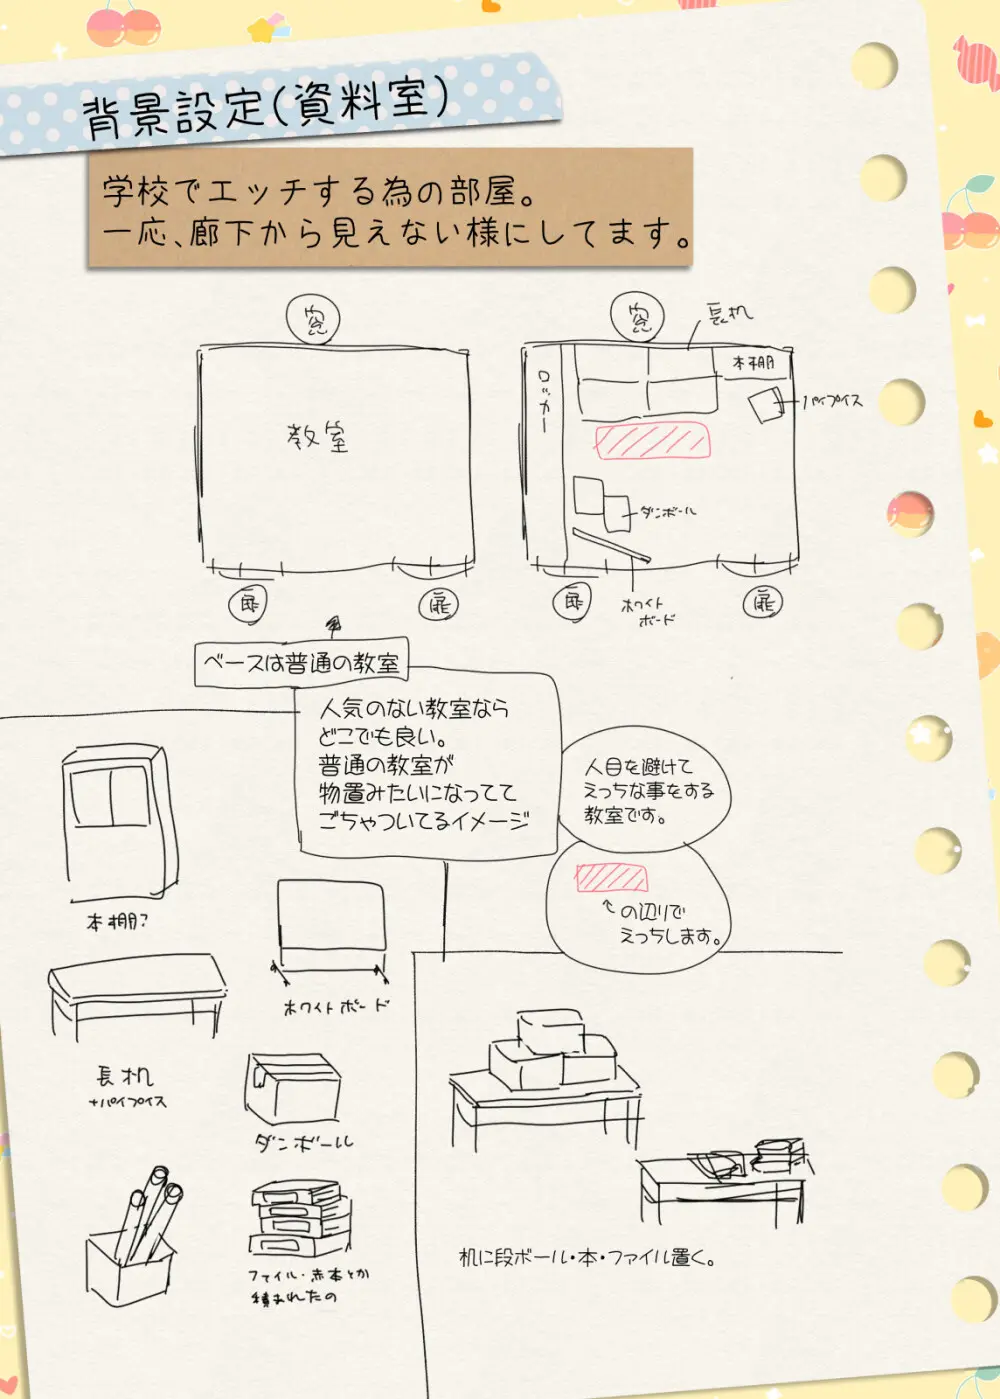 背景設定(資料室)
学校でエッチする為の部屋。
一応、廊下から見えない様にしてます。
窓
教室
扉
扉
窓
長机
本棚
ロッカー
パイプイス
ダンボール
扉
ホワイト
ボード
扉
ベースは普通の教室
人気のない教室なら
どこでも良い。
普通の教室が
物置みたいになってて
ごちゃついてるイメージ
人目を避けて
えっちな事をする
教室です。
の辺りで
えっちします。
本棚?
ホワイトボード
長机
+パイプイス
ダンボール
ファイル・赤本とか
積まれたの
机に段ボール・本・ファイル置く。